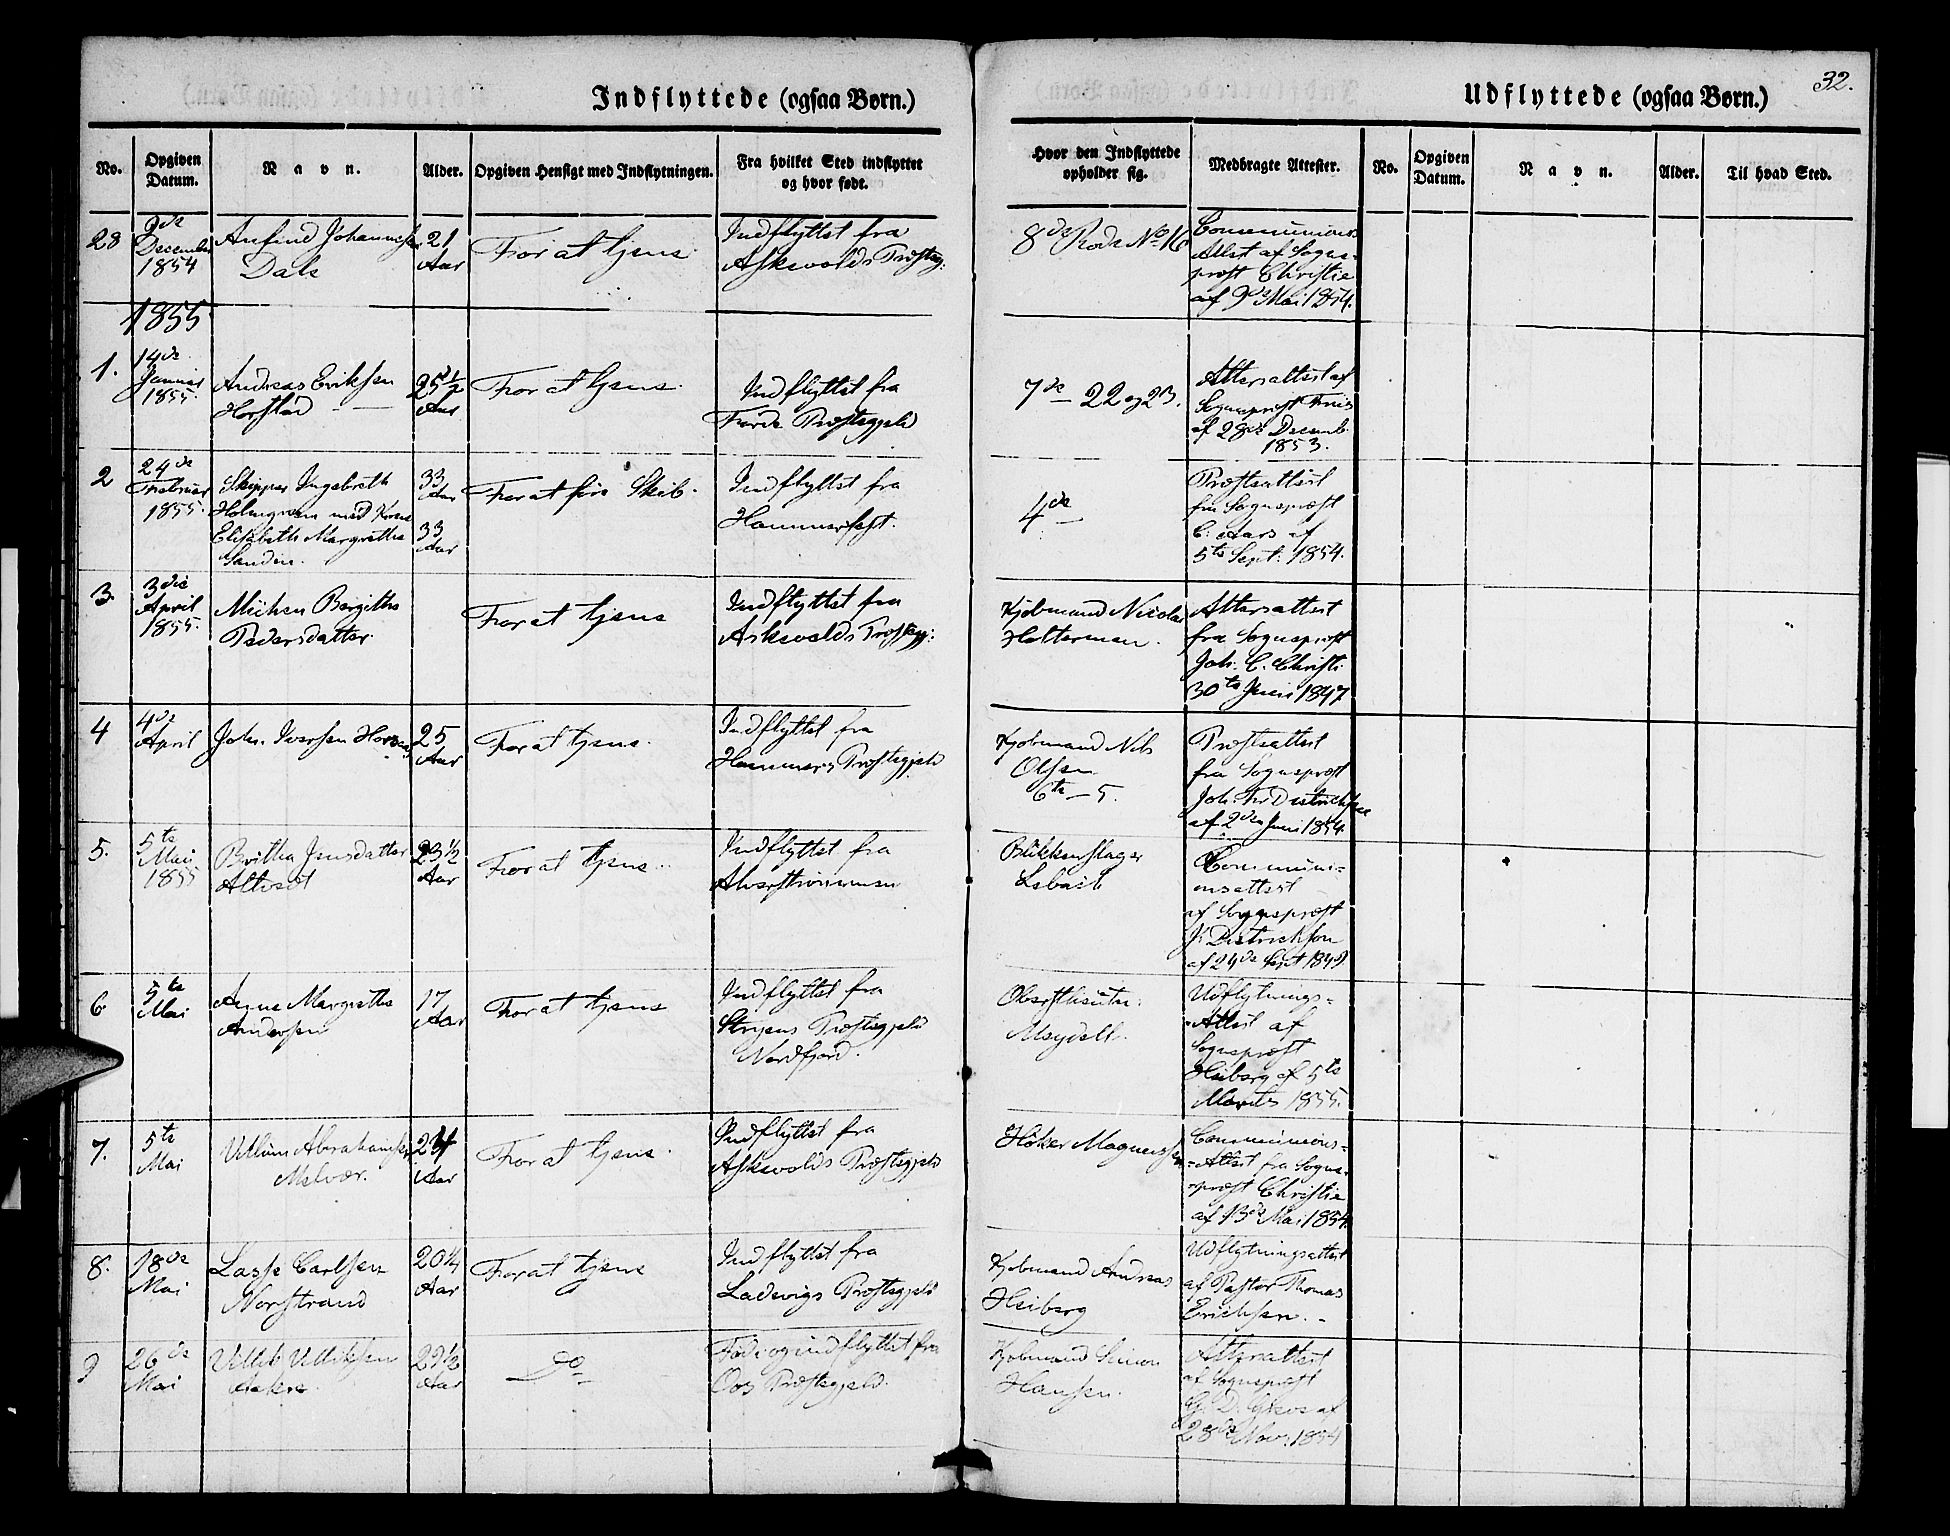 Indflyttede (ogsaa Børn.)
Udflyttede (ogsaa Børn.)
32.
No.
Opgiven Datum.
Navn.
Alder.
Opgiven Hensigt med Indflytningen.
Fra hvilket Sted indflyttet og hvor født.
Hvor den Indflyttede opholder sig.
Medbragte Attester.
No.
Opgiven Datum.
Navn.
Alder.
Til hvad Sted.
28
9de
December
1854
Anfind Johannessen
Dale
21
Aar
For at tjene
Indflyttet fra
Askevolds Præsteg:
8de Rode No 16
Communions
Attest af Sogne-
præst Christie
af 9de Mai 1854.
1855
1.
14de
Januar
1855.
Andreas Eriksen
Horstad
25 1/2
Aar
For at tjene.
Indflyttet fra
Førde Præstegjeld
7de 22 og 23.
Altersattest af
Sognepræst
af 28de Decemb.
1853.
2
24de
Februar
1855.
Skipper Ingebreth
Holmgreen med Kone
Elisabeth Margrethe
Sandin.
33
Aar
33
Aar
For at føre Skib.
Indflyttet fra
Hammerfest.
4de
Præsteattest
fra Sognepræst
C. Aars af
5te Sept: 1854.
3.
3die
April
1855.
Birgithe
Pedersdatter.
For at tjene
Indflyttet fra
Askevolds Præstegj:
Kjøbmand Nicolai
Holterman.
Altersattest
fra Sognepræst
Joh. C. Christi.
30te Juni 1847
4
4de
April
Joh. Iversen
25
Aar
For at tjene.
Indflyttet fra
Hammers Præstegjeld
Kjøbmand Nils
Olsen
6te – 5.
Præsteattest
fra Sognepræst
Joh. Fr Dietrichson
af 2den Juni 1854.
5.
5te
Mai
1855
Britha Jensdatter
23 1/2
Aar
For at tjene.
Indflyttet fra
Alverstrømmen
Blikkenslager
Communi-
onsattest
af Sognepræst
J. Dietrichson
af 24de Sept 1849
6
5te
Mai
Anne Margrethe
Andersen
17
Aar
For at tjene
Indflyttet fra
Stryens Præstegjeld
Nordfjord.
Oberstlieutn:
Meydell.
Udflytnings-
Attest af
Sognepræst
Heiberg af 5te
Marts 1855.
7.
5te
Mai
Villum Abrahamsen
Melvær.
24
Aar
For at tjene.
Indflyttet fra
Askevolds Præstegjeld
Høker Magnussen
Communions-
Attest fra Sogne-
præst Christie
af 13de Mai 1854.
8.
18de
Mai
Lasse Carlsen
Norstrand
20 1/4
Aar
For at tjene
Indflyttet fra
Ladevigs Præstegjeld
Kjøbmand Andreas
Heiberg
Udflytningsattest
af Pastor Thomas
Erichsen.
9
26de
Mai
Villik Villiksen
29 1/2
Aar
Do
Føde og indflyttet fra
Oos Præstegjeld.
Kjøbmand Simon
Hansen.
Altersattest
af Sognepræst
af
28de Nov. 1854